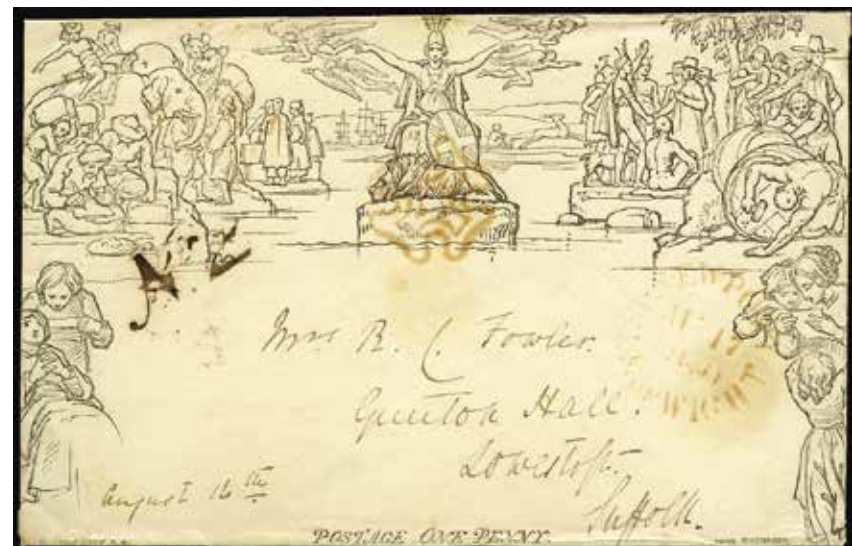 Mrs R. C. Fowler.
Gunton Hall.
Lowestoft
Suffolk.
August 16th
POSTAGE ONE PENNY.
WIGHT